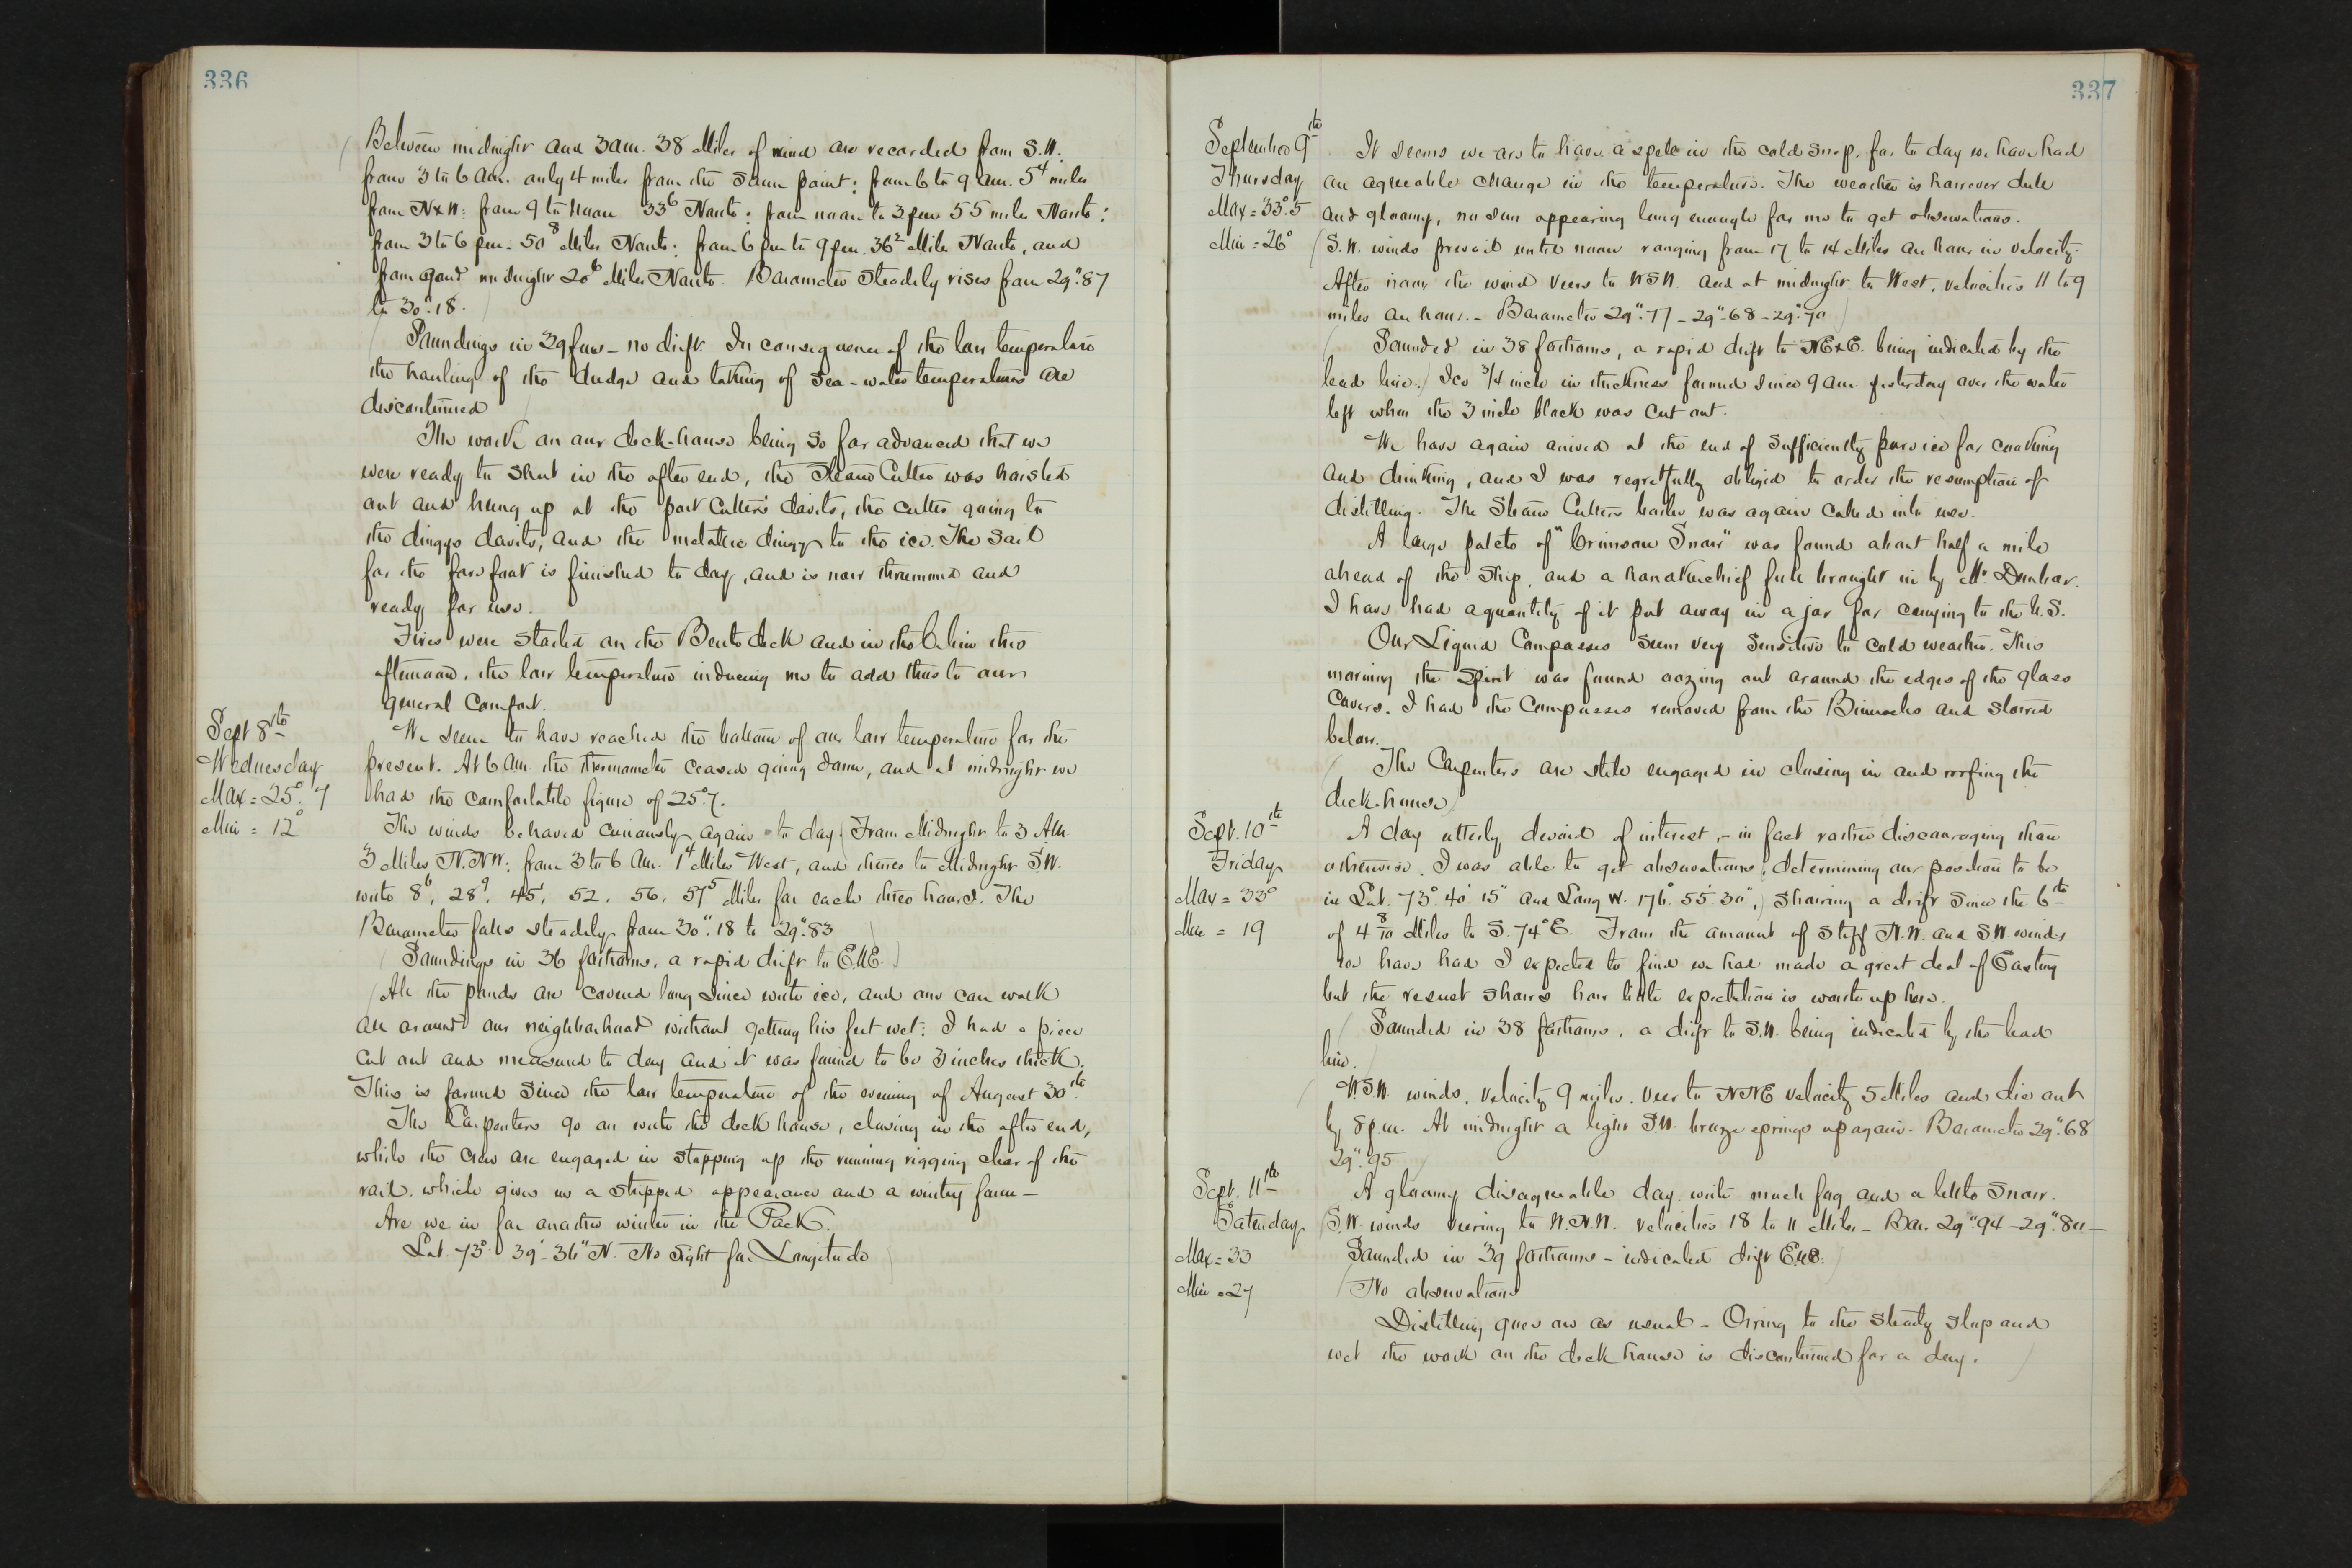 336
Between midnight and 3 am. 38 Miles of wind are recorded from S.W.
from 3 to 6 am. only 4 miles from the same point: from 6 to 9 am. 5⁴ miles
from NxW: from 9 to noon 33⁶ North: from noon to 3 pm 55 miles North:
from 3 to 6 pm. 50⁸ Miles North: from 6 pm to 9 pm. 36² Miles North, and
from 9 and midnight 20⁶ Miles North. Barometer steadily rises from 29".87
to 30".18.
Soundings in 29 fms - no drift. In consequence of the low temperature
the hauling of the dredge and taking of Sea-water temperatures are
discontinued
The work on our deck-house being so far advanced that we
were ready to shut in the after end, the Steam Cutter was hoisted
out and hung up at the port Cutters' davits, the cutter going to
the dinggs davits, and the metallic dinggy to the ice. The sail
for the forefoot is finished to day, and is now thrummed and
ready for use.
Fires were started on the Berth deck and in the Cabin this
afternoon, the low temperature inducing me to add thus to our
general comfort.
Sept 8th
Wednesday
Max = 25°.7
Min = 12°
We seem to have reached the bottom of our low temperature for the
present. At 6 am the thermometer ceased going down, and at midnight we
had the comfortable figure of 25°.7.
The winds behaved curiously again to day (From Midnight to 3 AM.
3 Miles N.NW: from 3 to 6 am. 1⁴ Miles West, and thence to Midnight S.W.
with 8⁶, 28⁹, 45¹, 52, 56, 57⁵ Miles for each three hours. The
Barometer falls steadily from 30".18 to 29".83
(Soundings in 36 fathoms, a rapid drift to E.N.E.)
(All the ponds are covered long since with ice, and one can walk
all around our neighborhood without getting his feet wet. I had a piece
cut out and measured to day and it was found to be 3 inches thick.
This is formed since the low temperature of the evening of August 30th.
The Carpenters go on with the deck house, closing in the after end,
while the crew are engaged in stopping up the running rigging clear of the
rail. which gives us a stripped appearance and a wintry form -
Are we in for another winter in the Pack.
Lat. 73° 39'-36" N. No sight for Longitude
337
September 9th
Thursday
Max = 33°.5
Min = 26°
It seems we are to have a spell in the cold snap, for to day we have had
an agreeable change in the temperature. The weather is however dull
and gloomy, no sun appearing long enough for me to get observations.
(S.W. winds prevail until noon ranging from 17 to 14 Miles an hour in velocity.
After noon the wind veers to WSW. and at midnight to West, velocities 11 to 9
miles an hour. - Barometer 29".77 - 29".68 - 29".70)
(Sounded in 38 fathoms, a rapid drift to NExE. being indicated by the
lead line.) Ice 3/4 inch in thickness formed since 9 am yesterday over the water
left when the 3 inch block was cut out.
We have again arrived at the end of sufficiently pure ice for cooking
and drinking, and I was regretfully obliged to order the resumption of
distilling. The Steam Cutters boiler was again called into use.
A large patch of "Crimson Snow" was found about half a mile
ahead of the Ship, and a handkerchief full brought in by Mr. Dunbar.
I have had a quantity of it put away in a jar for carrying to the U.S.
Our Liquid Compasses seem very sensitive to cold weather. This
morning the spirit was found oozing out around the edges of the glass
covers. I had the Compasses removed from the Binnacles and stowed
below.
(The Carpenters are still engaged in closing in and roofing the
deck-house)
Sept. 10th
Friday
Max = 33°
Min = 19
A day utterly devoid of interest, - in fact rather discouraging than
otherwise. I was able to get observations, determining our position to be
in Lat. 73°. 40'. 15" and Long W. 176°. 55'. 30",) showing a drift since the 6th
of 4 8/10 Miles to S. 74° E. From the amount of stiff N.W. and SW winds
we have had I expected to find we had made a great deal of Easting
but the result shows how little expectation is worth up here.
(Sounded in 38 fathoms, a drift to S.W. being indicated by the lead
line.)
(W.S.W. winds, velocity 9 miles. veer to NNE velocity 5 Miles and die out
by 8 p.m. At midnight a light S.W. breeze springs up again. Barometer 29".68
29".95)
Sept. 11th
Saturday
Max = 33
Min = 27
A gloomy disagreeable day with much fog and a little snow.
(S.W. winds veering to W.N.W. velocities 18 to 11 Miles - Bar. 29".94 - 29".80 -
Sounded in 39 fathoms - indicated drift E.N.E.)
(No observations
Distilling goes on as usual - Owing to the steady slop and
wet the work on the deck house is discontinued for a day.)